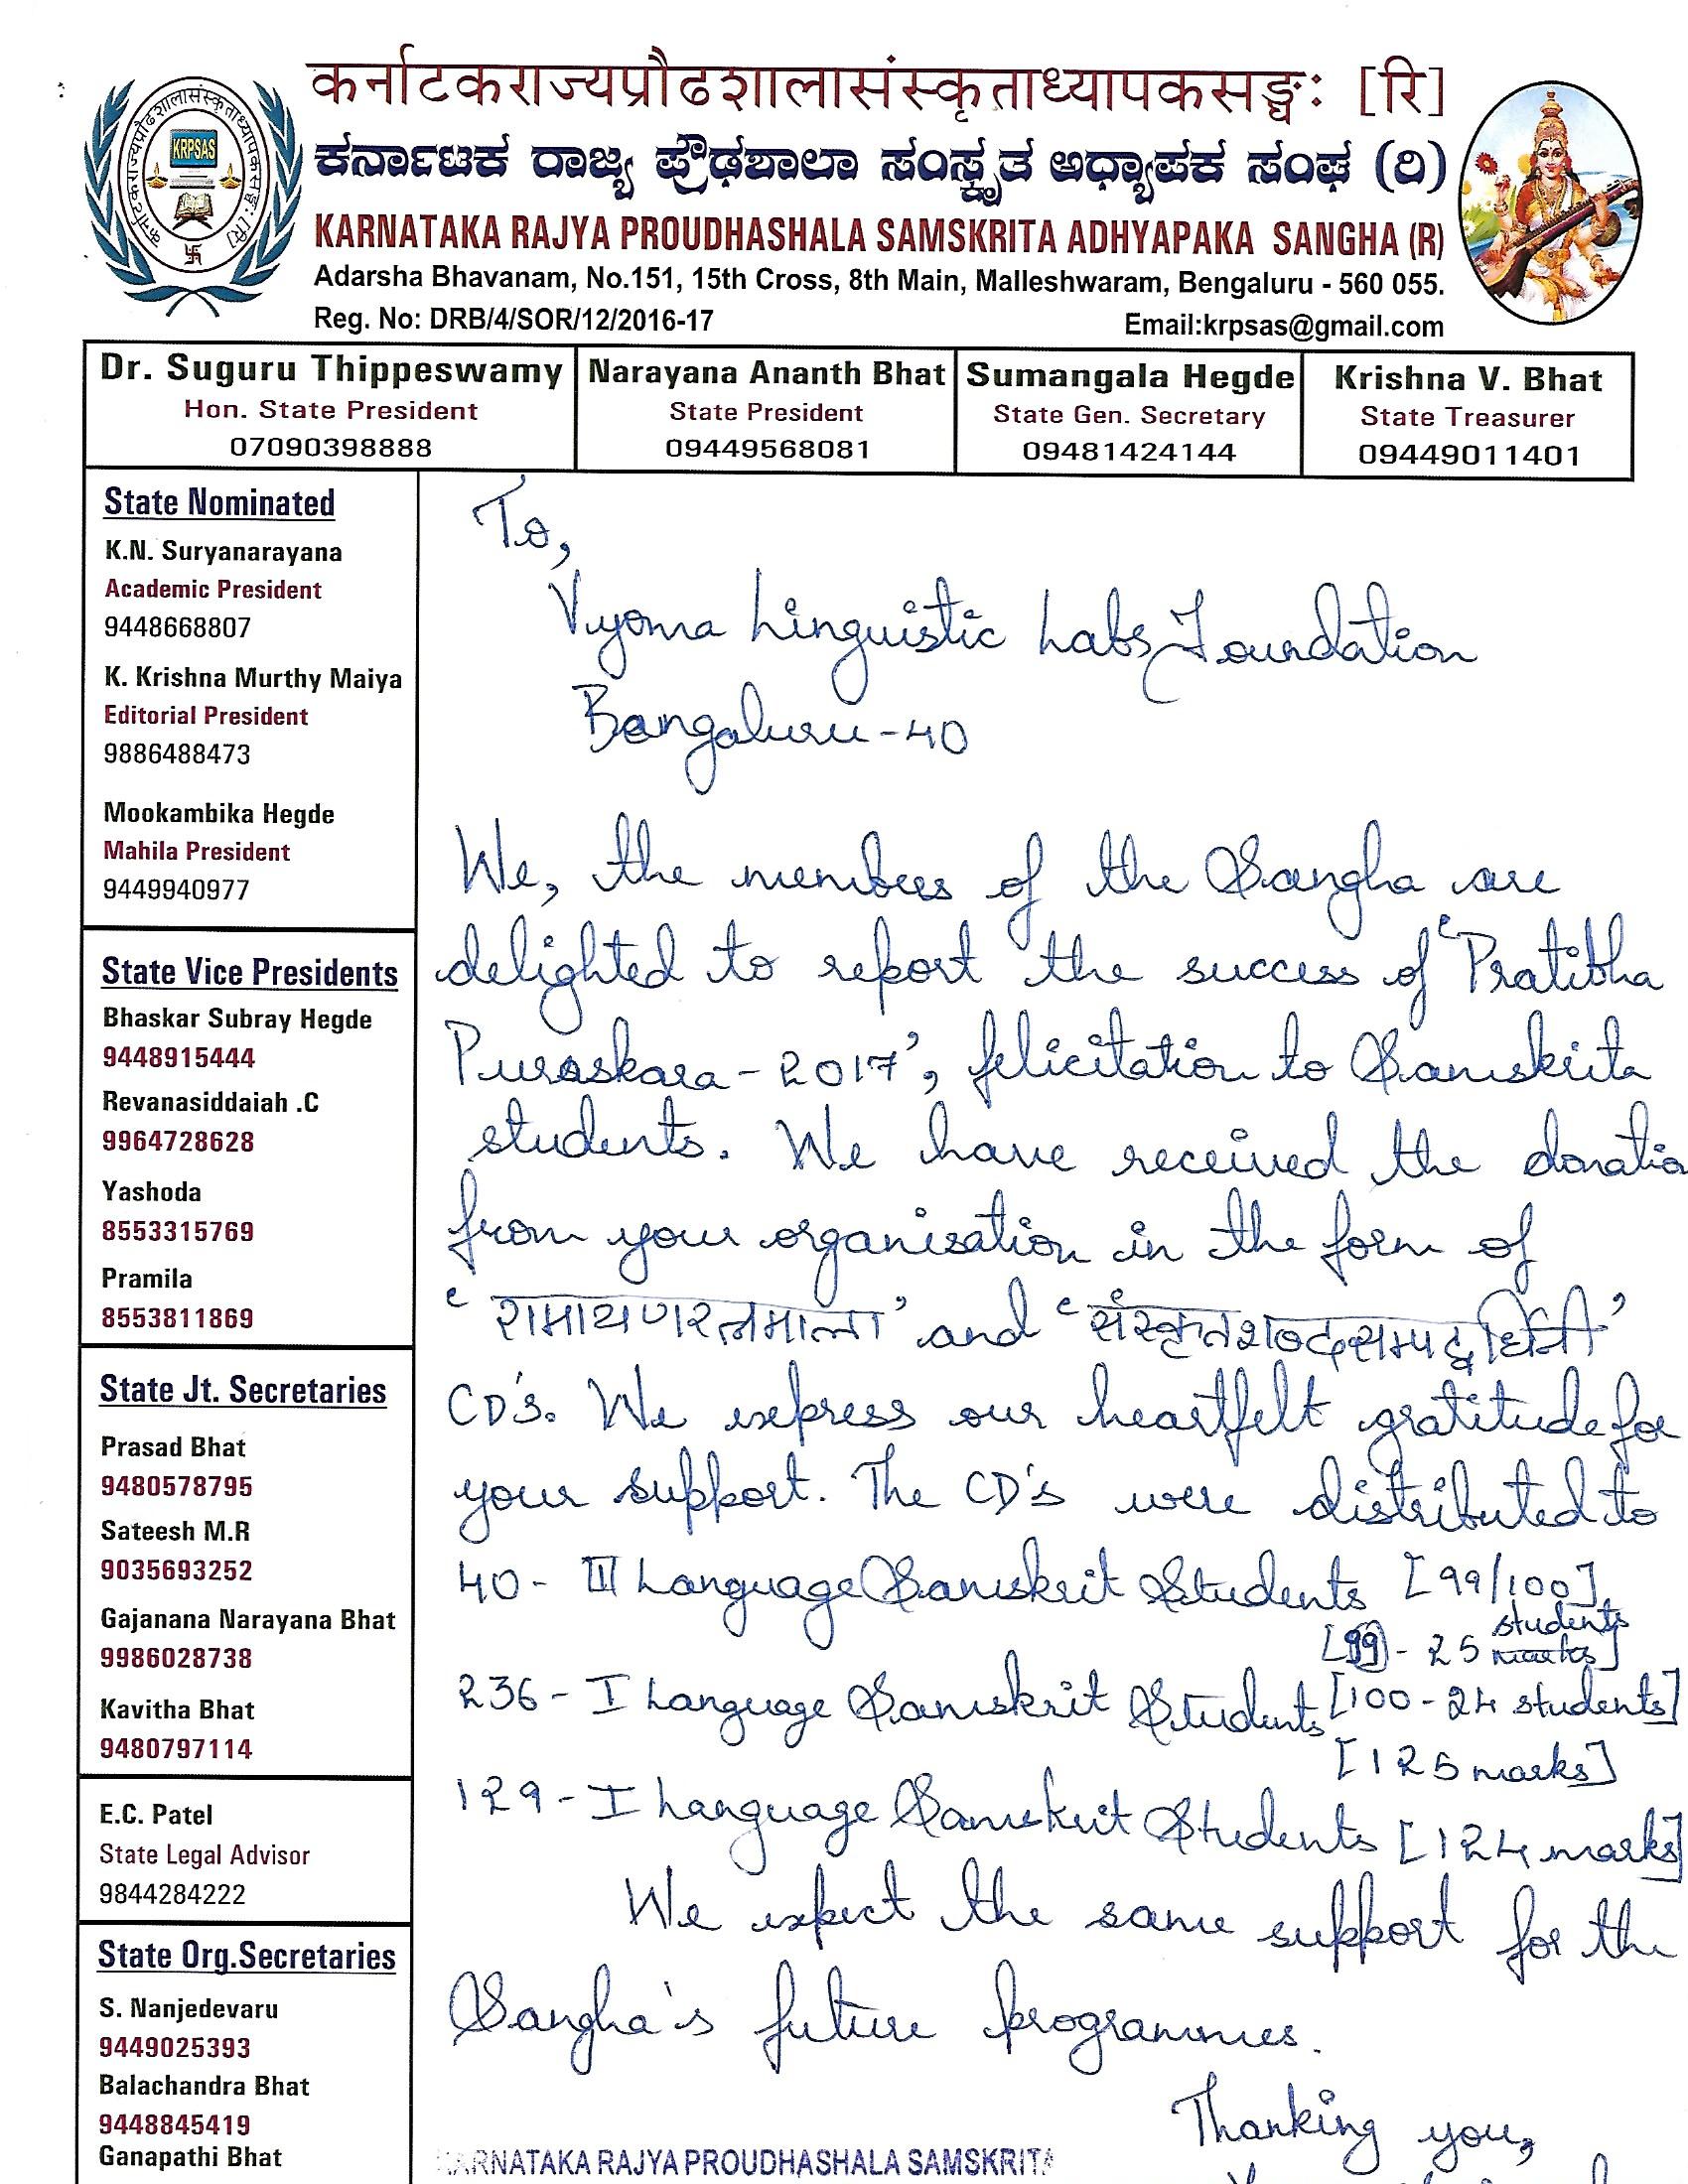 कर्नाटकराज्यप्रौढशालासंस्कृताध्यापकसङ्घः [रि]
ಕರ್ನಾಟಕ ರಾಜ್ಯ ಪ್ರೌಢಶಾಲಾ ಸಂಸ್ಕೃತ ಅಧ್ಯಾಪಕ ಸಂಘ (ರಿ)
KARNATAKA RAJYA PROUDHASHALA SAMSKRITA ADHYAPAKA SANGHA (R)
Adarsha Bhavanam, No.151, 15th Cross, 8th Main, Malleshwaram, Bengaluru - 560 055.
Reg. No: DRB/4/SOR/12/2016-17 Email:krpsas@gmail.com
कर्नाटकराज्यप्रौढशालासंस्कृताध्यापकसङ्घः [रि]
KRPSAS
Dr. Suguru Thippeswamy
Hon. State President
07090398888
Narayana Ananth Bhat
State President
09449568081
Sumangala Hegde
State Gen. Secretary
09481424144
Krishna V. Bhat
State Treasurer
09449011401
State Nominated
K.N. Suryanarayana
Academic President
9448668807
K. Krishna Murthy Maiya
Editorial President
9886488473
Mookambika Hegde
Mahila President
9449940977
State Vice Presidents
Bhaskar Subray Hegde
9448915444
Revanasiddaiah .C
9964728628
Yashoda
8553315769
Pramila
8553811869
State Jt. Secretaries
Prasad Bhat
9480578795
Sateesh M.R
9035693252
Gajanana Narayana Bhat
9986028738
Kavitha Bhat
9480797114
E.C. Patel
State Legal Advisor
9844284222
State Org.Secretaries
S. Nanjedevaru
9449025393
Balachandra Bhat
9448845419
Ganapathi Bhat
To,
Vyoma Linguistic Labs Foundation
Bangaluru-40
We, the members of the Sangha are
delighted to report the success of 'Pratibha
Puraskara - 2017', felicitation to Samskrita
students. We have received the donatio
from your organisation in the form of
'रामायणरत्नमाला' and 'संस्कृतशब्दसम्पद्वर्धिनी'
CD's. We express our heartfelt gratitude for
your support. The CD's were distributed to
40 - III Language Samskrit Students [99/100]
[99 - 25 students]
236 - I Language Samskrit Students [100 - 24 students]
[125 marks]
129 - I Language Samskrit Students [124 marks]
We expect the same support for the
Sangha's future programmes.
Thanking you,
KARNATAKA RAJYA PROUDHASHALA SAMSKRITA